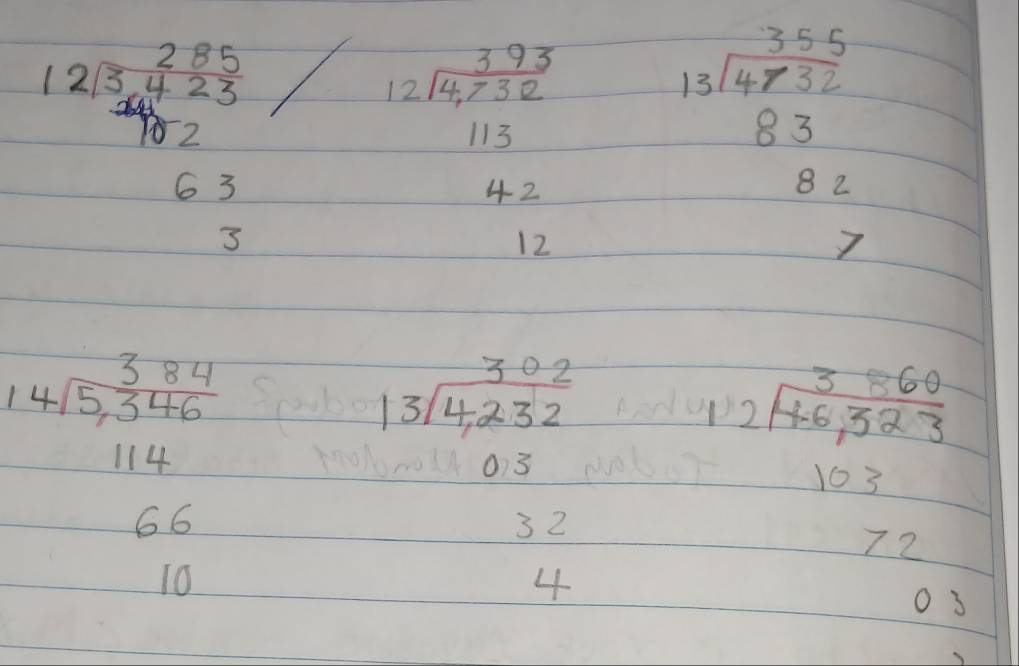 285 393 355
12 3,423 12 4,732 13 4732
102 113 83
63 42 82
3 12 7
384 302 3860
14 5,346 13 4,232 12 46,323
114 03 103
66 32 72
10 4 03